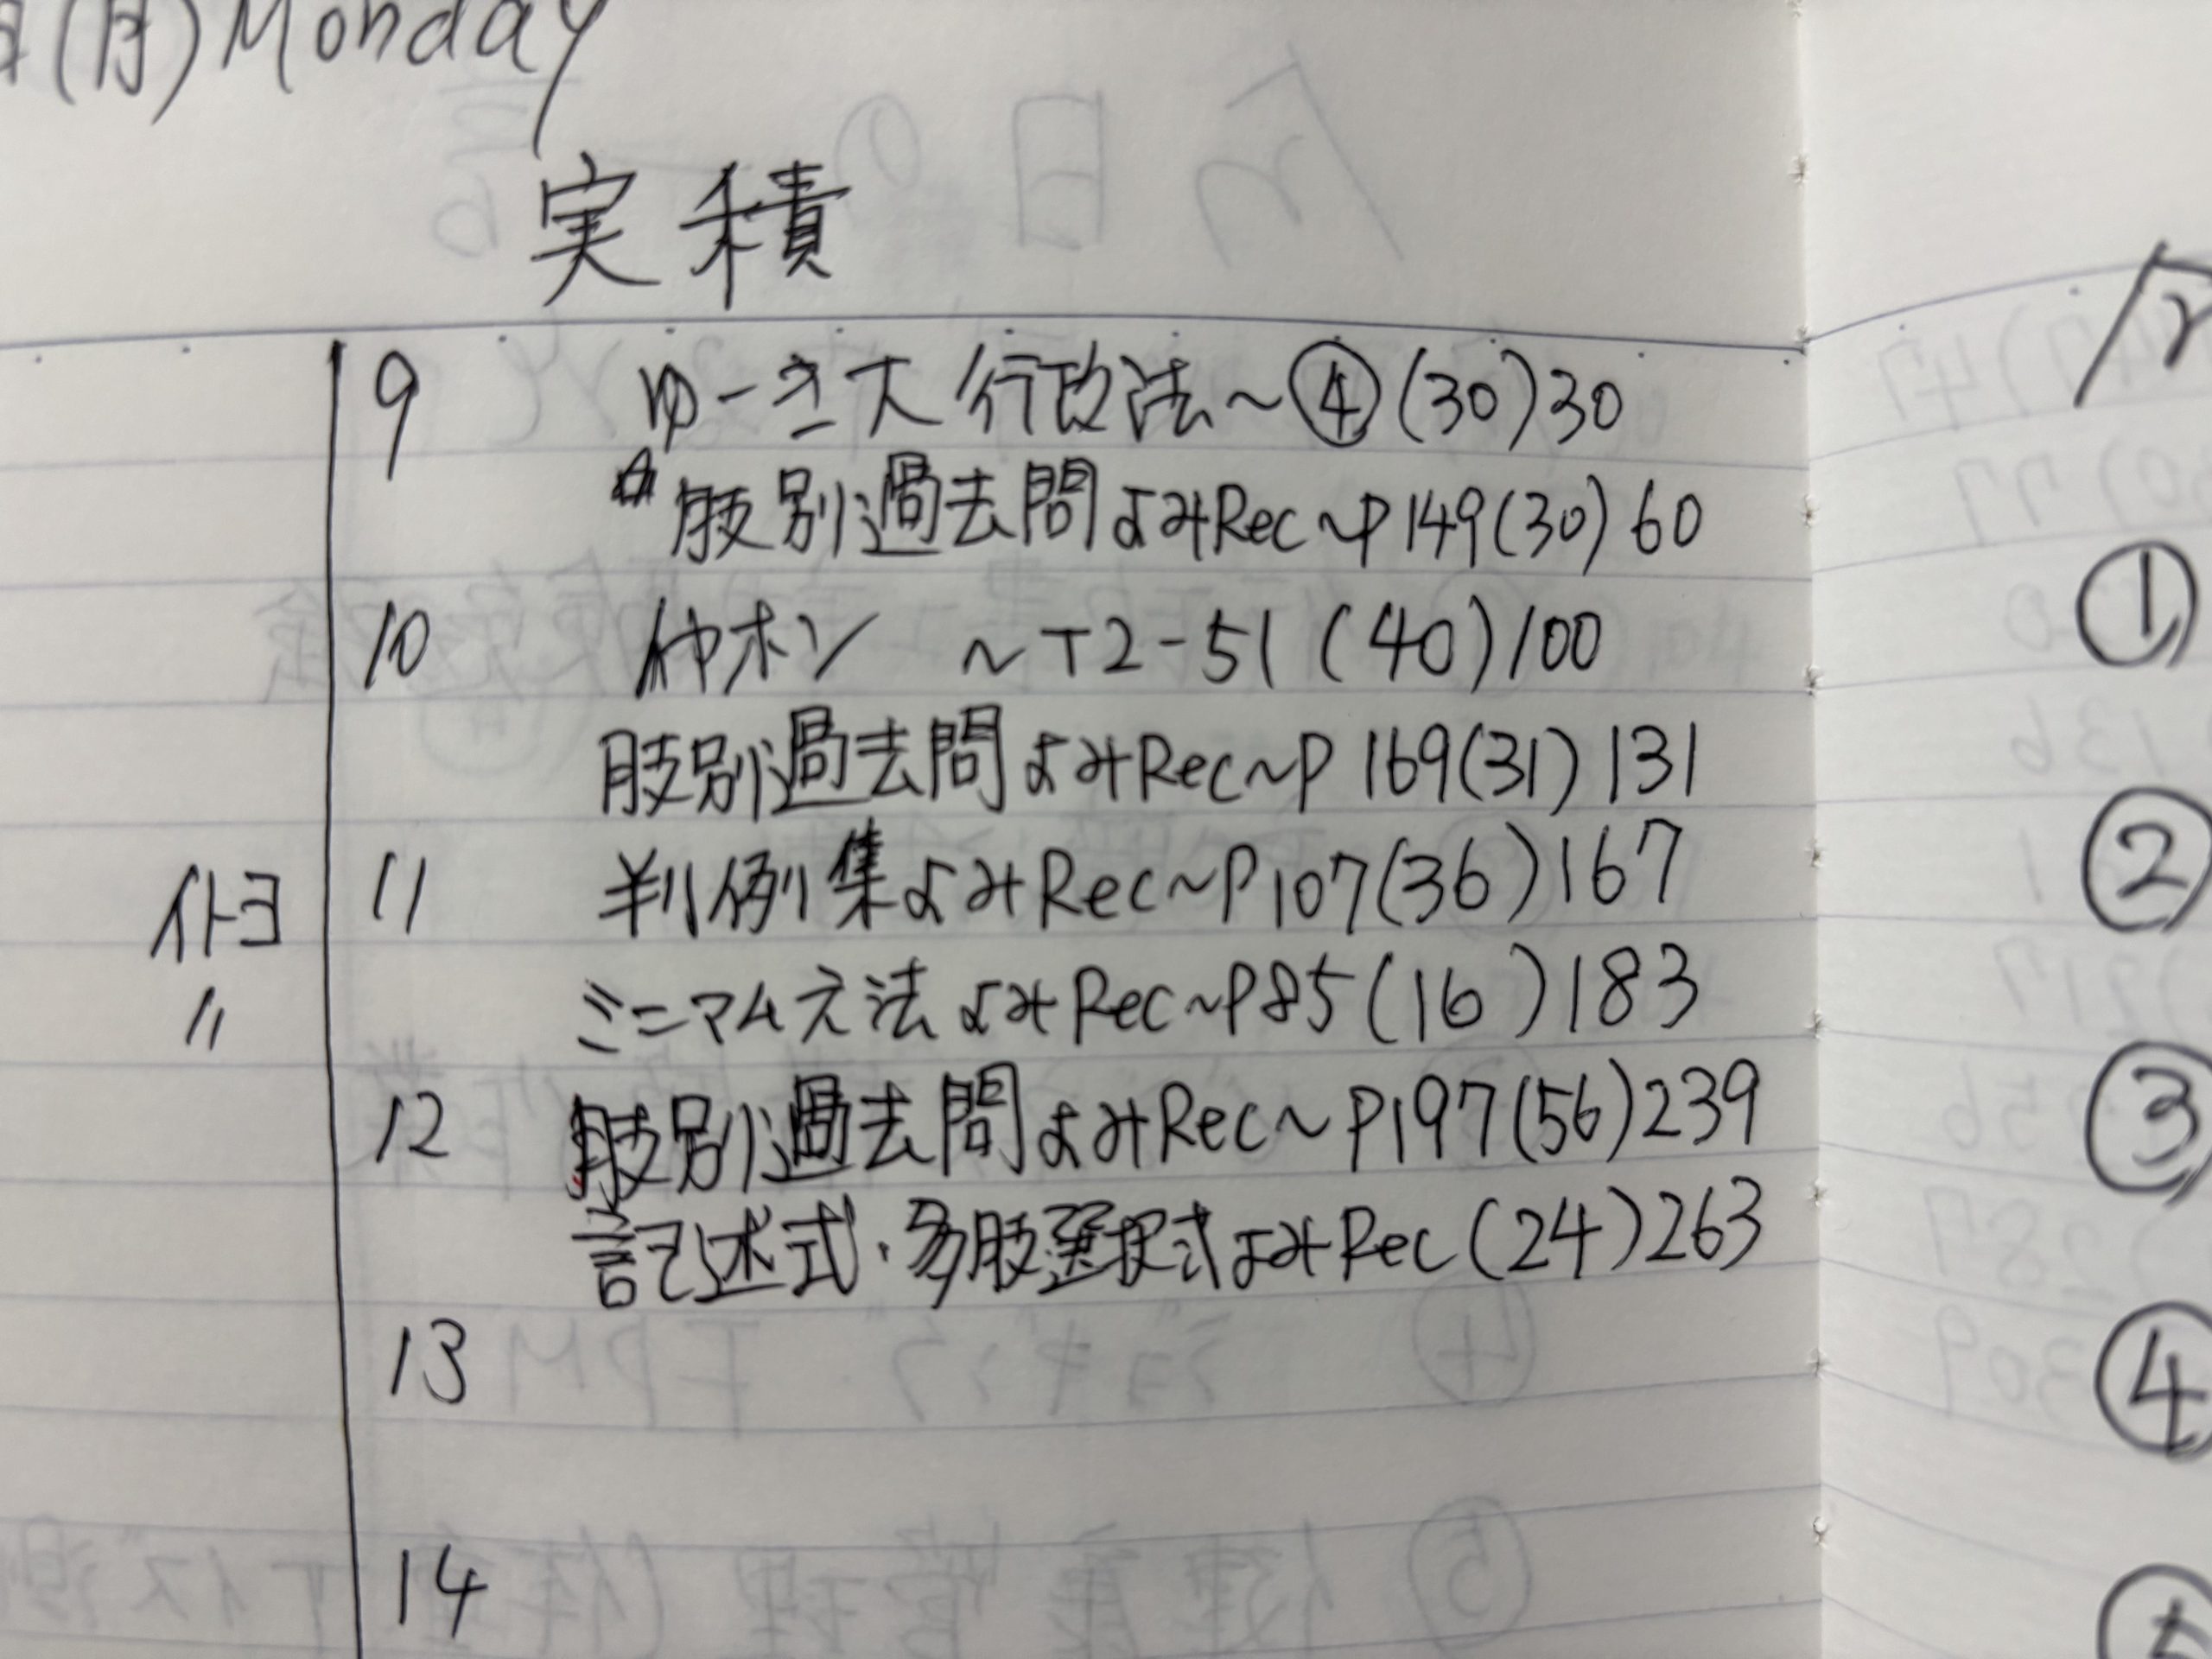 (月)Monday
実積
9 ゆーき大 行政法～④(30)30
肢別過去問よみRec～P149(30)60
10 ～T2-51(40)100
肢別過去問よみRec～P169(31)131
11 判例集よみRec～P107(36)167
ミニマム 法よみRec～P85(16)183
〃
12 肢別過去問よみRec～P197(56)239
記述式・多肢選択式よみRec(24)263
13
14
①
②
③
④